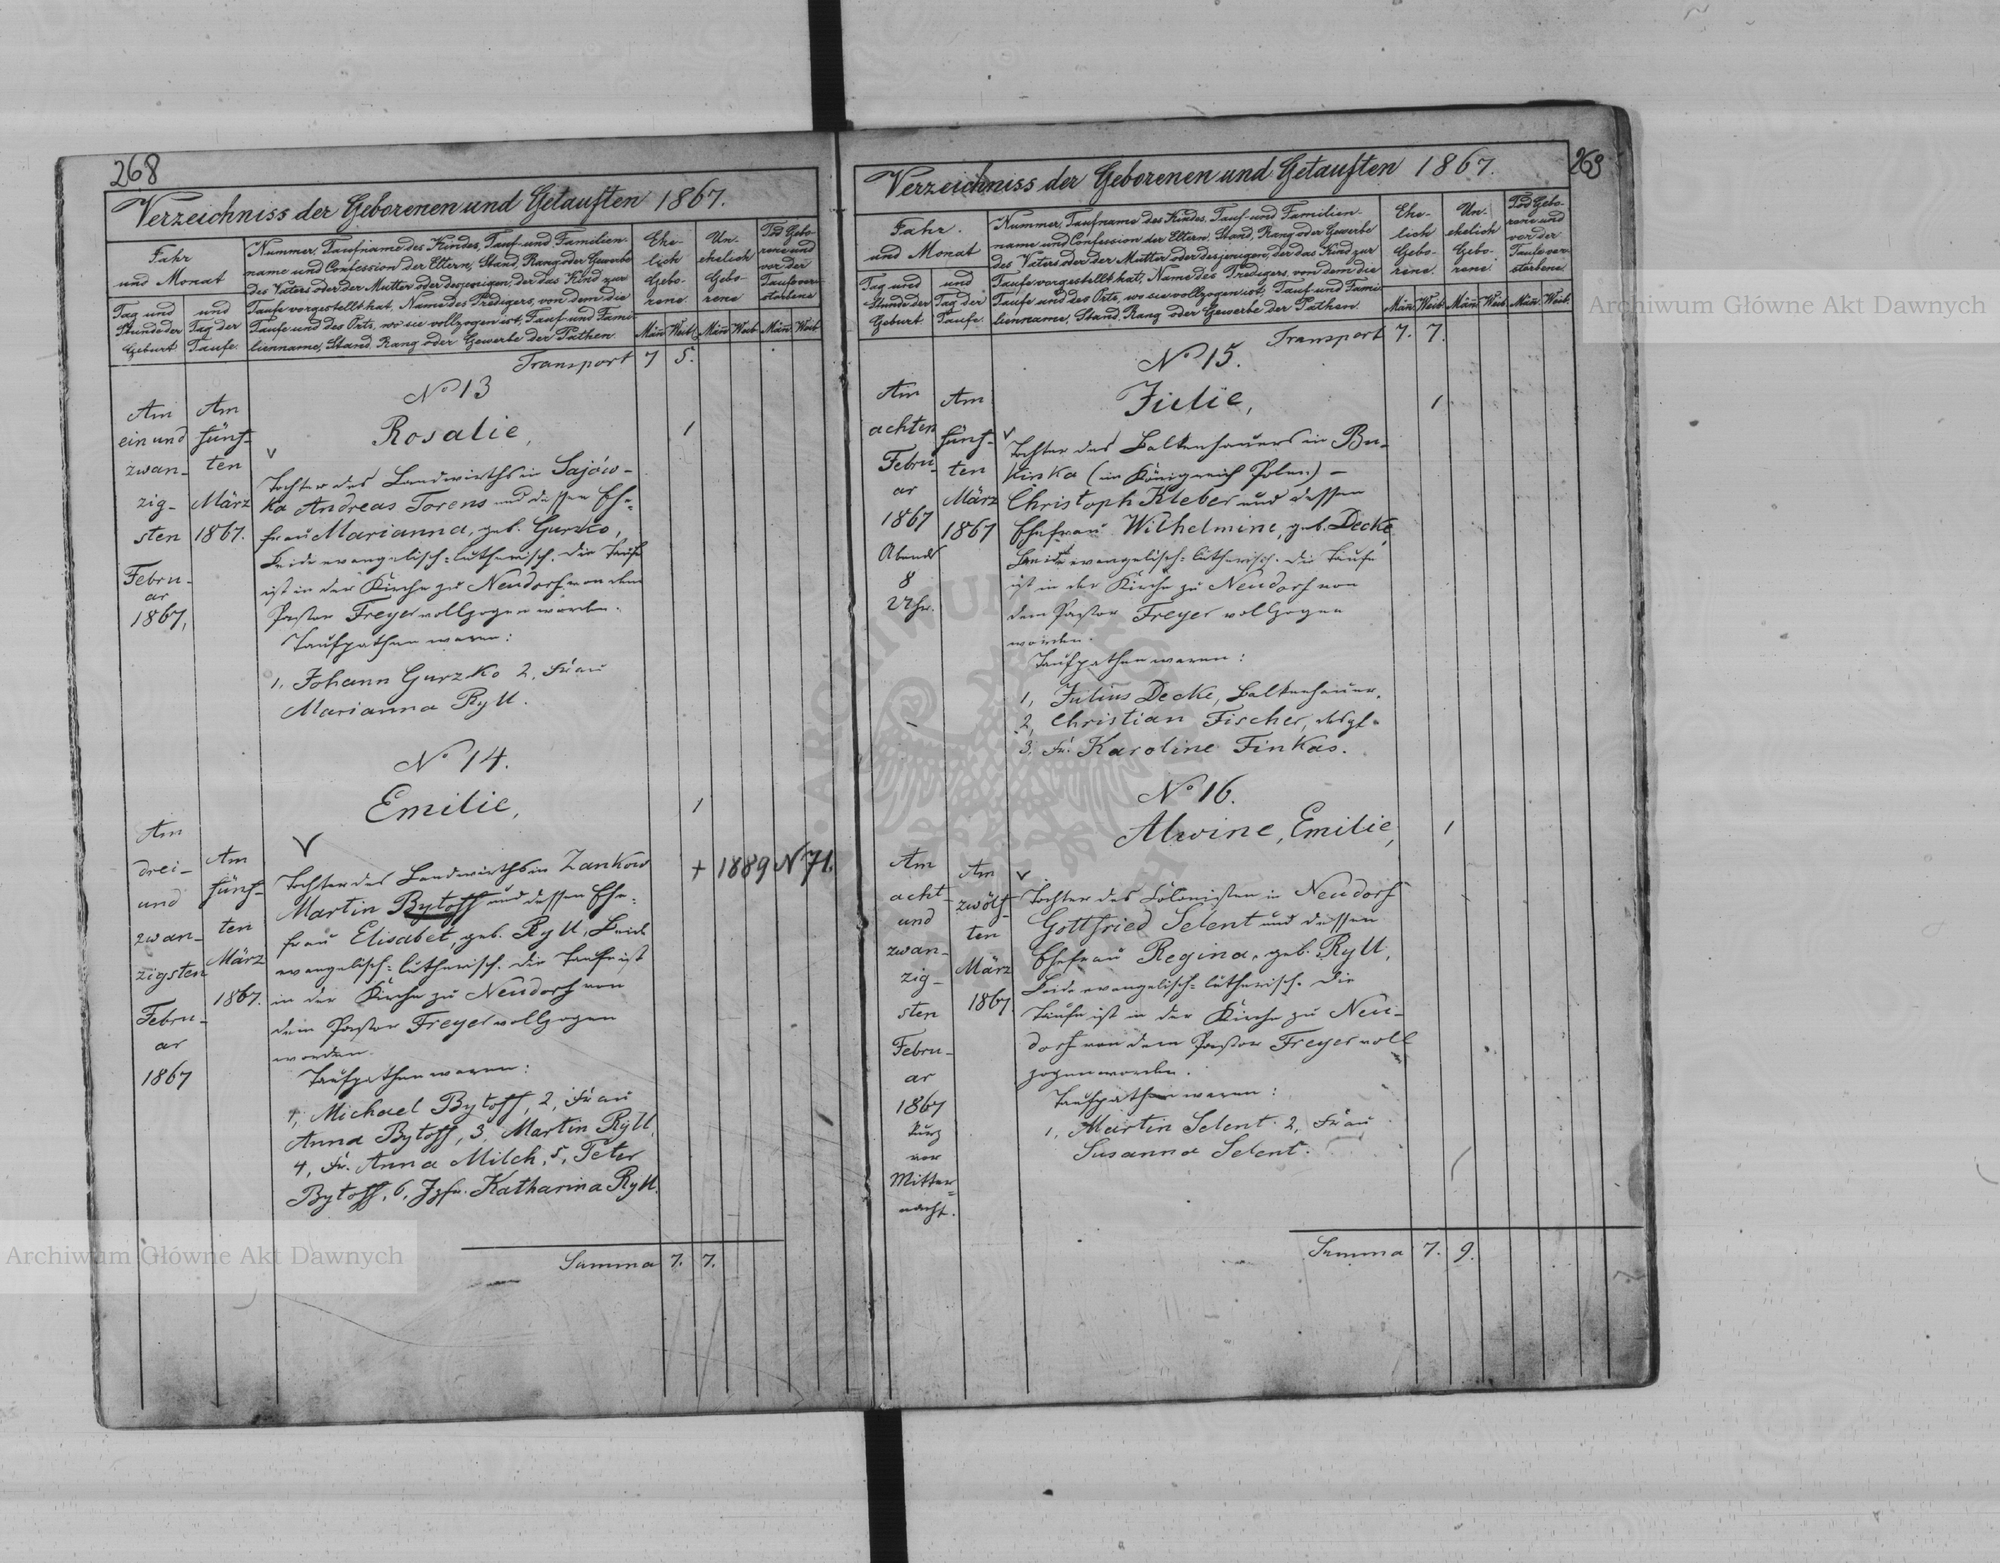 268
Verzeichniss der Geborenen und Getauften 1867.
Jahr
und Monat
Tag und
Stunde der
Geburt
und
Tag der
Taufe.
Nummer, Taufname des Kindes, Tauf- und Familien-
name und Confession der Eltern, Stand, Rang oder Gewerbe
des Vaters oder der Mutter oder desjenigen, der das Kind zur
Taufe vorgestellt hat, Name des Predigers, von dem die
Taufe und des Orts, wo sie vollzogen ist, Tauf- und Fami-
lienname, Stand, Rang oder Gewerbe der Pathen.
Ehe-
lich
Gebo-
rene
Un-
ehelich
Gebo-
rene
Tod Gebo-
rene und
vor der
Taufe ver-
storbene
Män̄ Weib. Män̄ Weib Män̄ Weib
Transport 7 5.
No 13
Rosalie,
1
Am
ein und
zwan-
zig-
sten
Febru-
ar
1867,
Am
fünf-
ten
März
1867.
Tochter des Landwirths in Sajów-
ka Andreas Torens und dessen Ehe-
frau Marianna, geb. Gurzko,
Beide evangelisch-lutherisch. Die Taufe
ist in der Kirche zu Neudorf von dem
Pastor Freyer vollzogen worden.
Taufpathen waren:
1, Johann Gurzko 2, Frau
Marianna Ryll.
No 14.
Emilie,
1
Am
drei-
und
zwan-
zigsten
Febru-
ar
1867
Am
fünf-
ten
März
1867.
Tochter des Landwirths in Zankow
Martin Bytoff und dessen Ehe-
frau Elisabet, geb. Ryll, Beide
evangelisch-lutherisch. Die Taufe ist
in der Kirche zu Neudorf von
dem Pastor Freyer vollzogen
worden.
+ 1889 N 71.
Taufpathen waren:
1, Michael Bytoff, 2, Frau
Anna Bytoff, 3, Martin Ryll,
4, Fr. Anna Milch, 5, Peter
Bytoff, 6, Jgfr. Katharina Ryll.
Summa 7. 7.
269
Verzeichniss der Geborenen und Getauften 1867.
Jahr.
und Monat
Tag und
Stunde der
Geburt.
und
Tag der
Taufe.
Nummer, Taufname des Kindes, Tauf- und Familien-
name und Confession der Eltern, Stand, Rang oder Gewerbe
des Vaters oder der Mutter oder desjenigen, der das Kind zur
Taufe vorgestellt hat, Name des Predigers, von dem die
Taufe und des Orts, wo sie vollzogen ist, Tauf- und Fami-
lienname, Stand, Rang oder Gewerbe der Pathen.
Ehe-
lich
Gebo-
rene.
Un-
ehelich
Gebo-
rene.
Tod Gebo-
rene und
vor der
Taufe ver-
storbene.
Män̄ Weib. Män̄ Weib Män̄ Weib.
Transport 7. 7.
No 15.
Julie,
1
Am
achten
Febru-
ar
1867
Abends
8
Uhr.
Am
fünf-
ten
März
1867
Tochter des Balkenhauers in
(im Königreich Polen) -
Christoph Kleber und dessen
Ehefrau Wilhelmine, geb. Decke,
Beide evangelisch-lutherisch. Die Taufe
ist in der Kirche zu Neudorf von
dem Pastor Freyer vollzogen
worden.
Taufpathen waren:
1, Julius Decke, Balkenhauer.
2, Christian Fischer, desgl.
3, Fr. Karoline Finkas.
No 16.
Alwine, Emilie,
1
Am
acht-
und
zwan-
zig-
sten
Febru-
ar
1867
kurz
vor
Mitter-
nacht.
Am
zwölf-
ten
März
1867.
Tochter des Colonisten in Neudorf
Gottfried Selent und dessen
Ehefrau Regina, geb. Ryll,
Beide evangelisch-lutherisch. Die
Taufe ist in der Kirche zu Neu-
dorf von dem Pastor Freyer voll
zogen worden.
Taufpathen waren:
1, Martin Selent. 2, Frau
Susanna Selent.
Summa 7. 9.
Archiwum Główne Akt Dawnych
Archiwum Główne Akt Dawnych